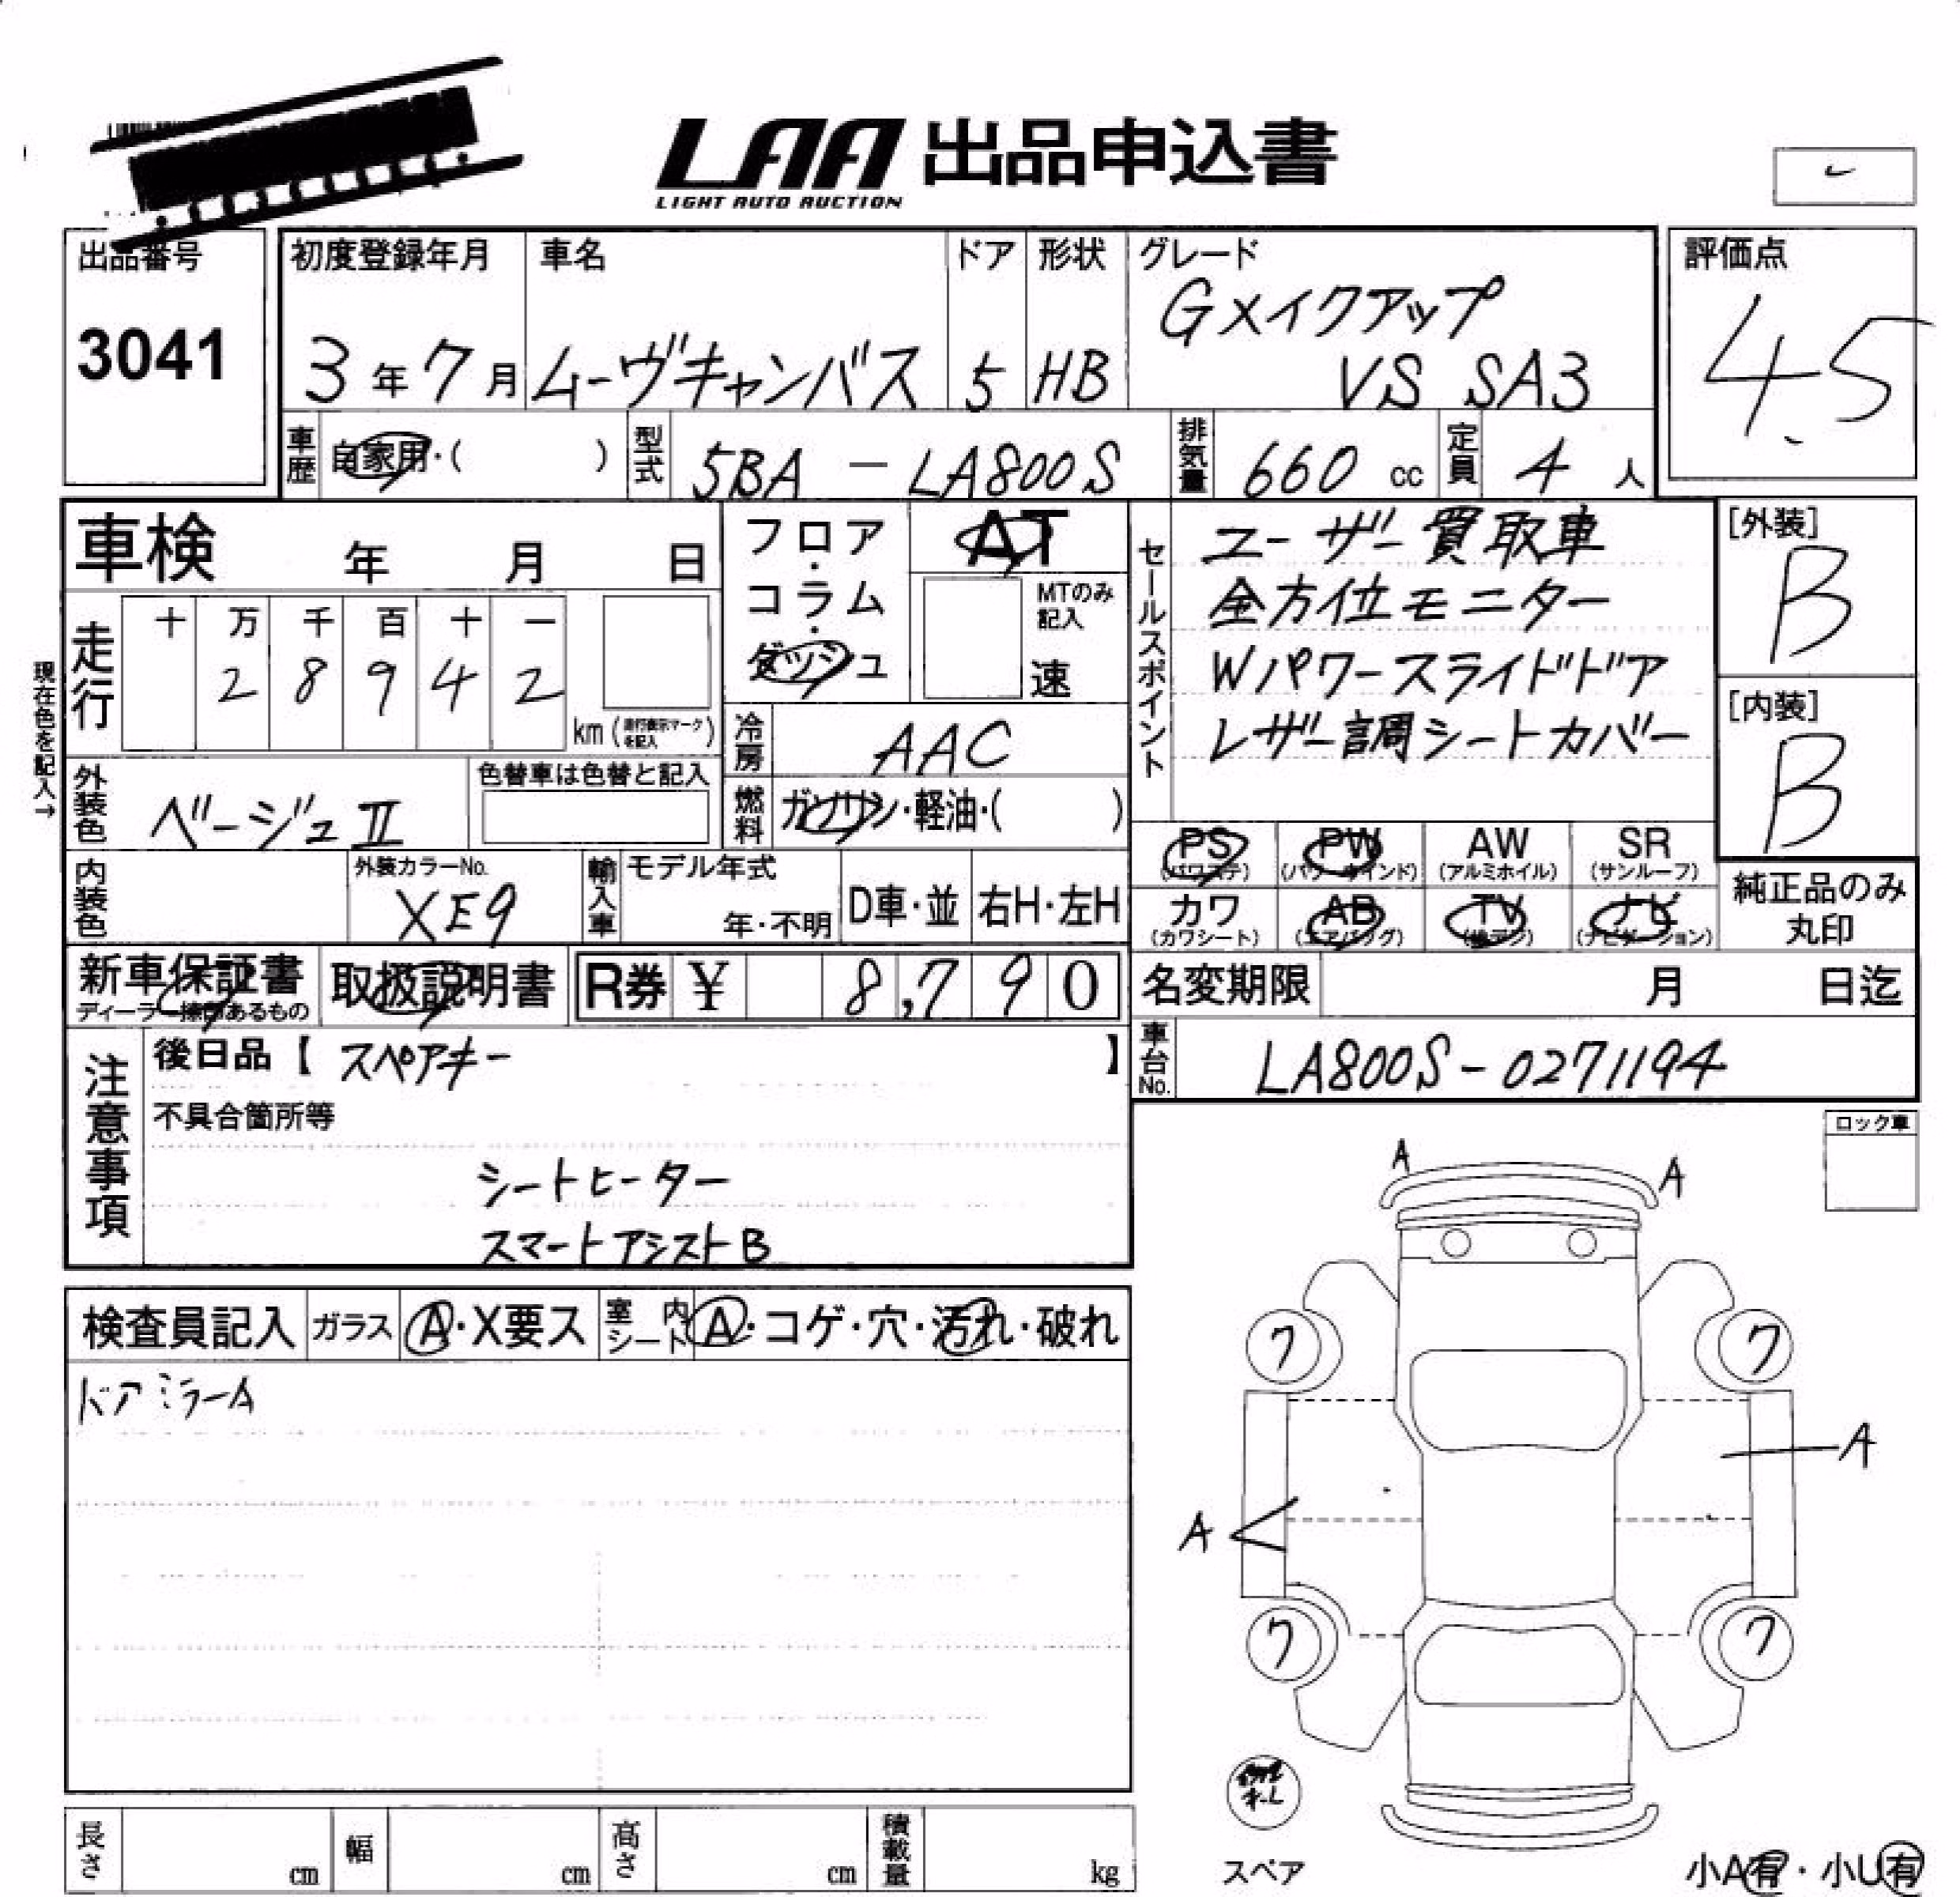 LAA 出品申込書
LIGHT AUTO AUCTION
出品番号
3041
初度登録年月
3年7月
車名
ムーヴキャンバス
ドア
5
形状
HB
グレード
Gメイクアップ
VS SA3
評価点
4.5
車歴
自家用・( )
型式
5BA - LA800S
排気量
660 cc
定員
4 人
車検 年 月 日
フロア・コラム・ダッシュ
AT
MTのみ記入
速
セールスポイント
ユーザー買取車
全方位モニター
Wパワースライドドア
レザー調シートカバー
[外装]
B
[内装]
B
走行
十 万 千 百 十 一
2 8 9 4 2
km(走行表示マークを記入)
現在色を記入→
冷房
AAC
外装色
ベージュⅡ
色替車は色替と記入
燃料
ガソリン・軽油・( )
PS (パワステ)
PW (パワーウインド)
AW (アルミホイル)
SR (サンルーフ)
カワ (カワシート)
AB (エアバッグ)
TV
ナビ (ナビゲーション)
純正品のみ丸印
内装色
外装カラーNo.
XE9
輸入車
モデル年式
年・不明
D車・並
右H・左H
新車保証書
取扱説明書
R券 ¥ 8,790
名変期限 月 日迄
車台No.
LA800S-0271194
注意事項
後日品【 スペアキー 】
不具合箇所等
シートヒーター
スマートアシストB
ロック車
A
A
検査員記入
ガラス
A・X要ス
室内シート
A・コゲ・穴・汚れ・破れ
ドアミラーA
ワ
ワ
A
A
ワ
ワ
スペア
長さ cm
幅 cm
高さ cm
積載量 kg
小A有・小U有